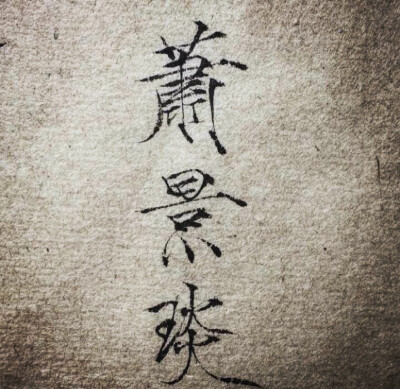 蕭景琰